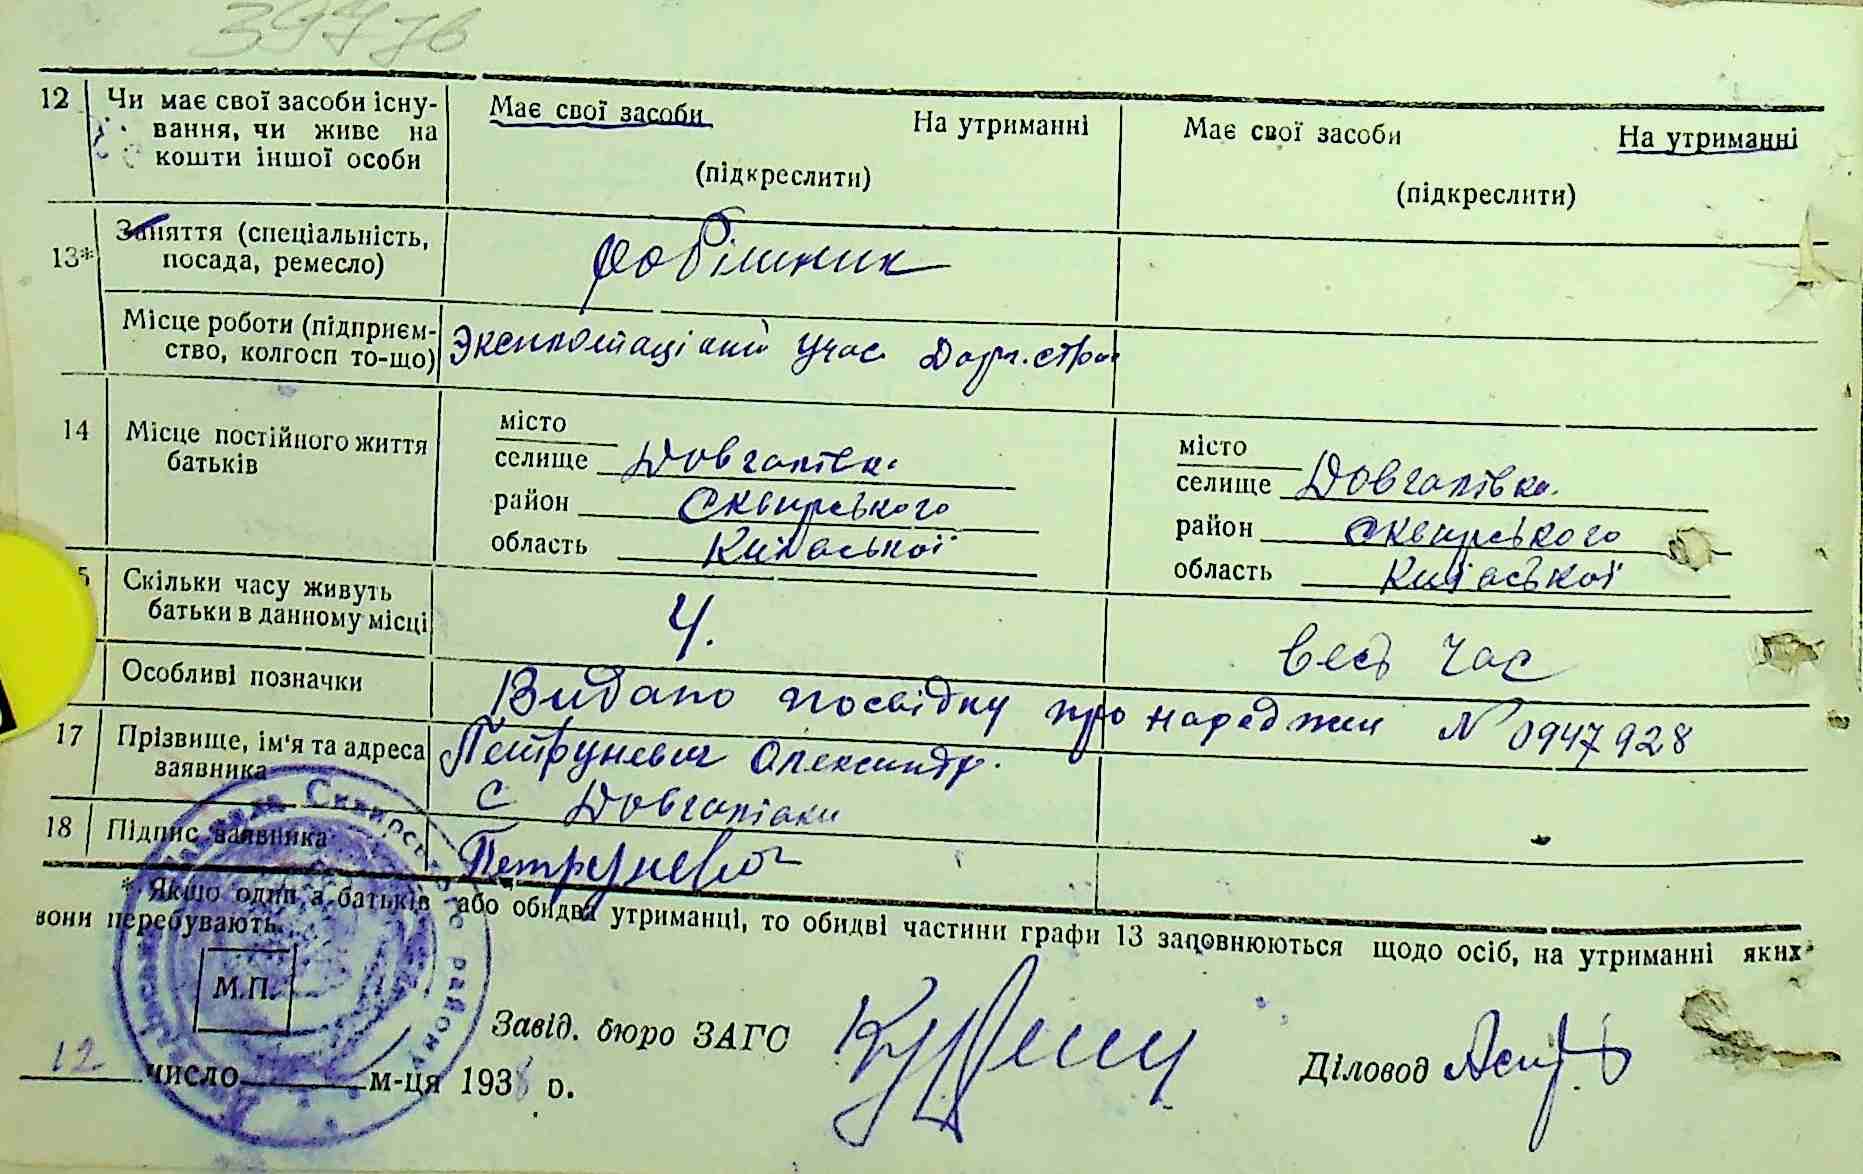 12 Чи має свої засоби існу-
вання, чи живе на
кошти іншої особи
Має свої засоби На утриманні
(підкреслити)
Має свої засоби На утриманні
(підкреслити)
13* Заняття (спеціальність,
посада, ремесло)
робітник
Місце роботи (підприєм-
ство, колгосп то-що)
Учас
14 Місце постійного життя
батьків
місто
селище Довгалівка
район Сквирського
область Київської
місто
селище Довгалівка
район Сквирського
область Київської
5 Скільки часу живуть
батьки в данному місці
весь час
Особливі позначки
Видано посвідку про народжен N 0947928
17 Прізвище, ім'я та адреса
заявника
Петруневич Олександр.
с Довгалівки
18 Підпис заявника
* Якщо один з батьків або обидва утриманці, то обидві частини графи 13 заповнюються щодо осіб, на утриманні яких
вони перебувають.
М.П.
Завід. бюро ЗАГС
Діловод
12 число м-ця 193 р.